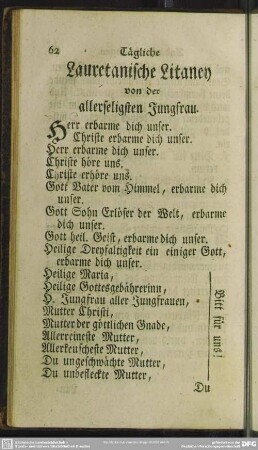 62 Tägliche
Lauretanische Litaney
von der
allerseligsten Jungfrau.
Herr erbarme dich unser.
Christe erbarme dich unser.
Herr erbarme dich unser.
Christe höre uns.
Christe erhöre uns.
Gott Vater vom Himmel, erbarme dich
unser.
Gott Sohn Erlöser der Welt, erbarme
dich unser.
Gott heil. Geist, erbarme dich unser.
Heilige Dreyfaltigkeit ein einiger Gott,
erbarme dich unser.
Heilige Maria,
Heilige Gottesgebährerinn,
H. Jungfrau aller Jungfrauen,
Mutter Christi,
Mutter der göttlichen Gnade,
Allerreineste Mutter,
Allerkeuscheste Mutter,
Du ungeschwächte Mutter,
Du unbefleckte Mutter,
Bitt für uns!
Du
DFG